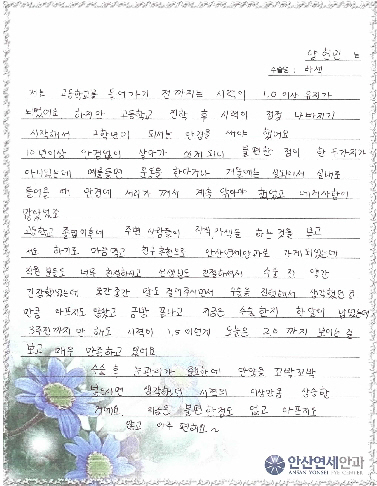 양현민 님
수술명 : 라섹
저는 고등학교를 들어가기 전까지는 시력이 1.0 이상 유지가
되었어요 하지만 고등학교 진학 후 시력이 점점 나빠지기
시작해서 2학년이 되서는 안경을 써야 했어요
10년이상 안경없이 살다가 쓰게 되니 불편한 점이 한 두가지가
아니었는데 예를들면 운동을 한다거나 겨울에는 실외에서 실내로
들어올 때 안경에 서리가 껴서 계속 닦아야 했었고 번거로움이
많았었죠
고등학교 졸업이후에 주변 사람들이 시력교정술을 하는 것을 보고
저도 하기로 마음먹고 친구추천으로 안산연세안과로 가게 되었는데
직원분들도 너무 친절하시고 선생님도 친절하셔서 수술 전 약간
긴장했었는데 중간중간 말도 걸어주시면서 수술을 진행해서 생각했던 것
만큼 아프지도 않았고 금방 끝나고 지금은 수술한지 한달이 넘었는데
3주전까지만 해도 시력이 1.5 이였는데 오늘은 2.0 까지 보이는 걸
보고 매우 만족하고 있어요
수술 후 눈관리가 중요하며 안약을 꼬박꼬박
넣는다면 생각하던 시력의 이상만큼 상승할
거에요 지금은 불편한점도 없고 아프지도
않고 아주 편해요~
안산연세안과
ANSAN YONSEI EYE CENTER